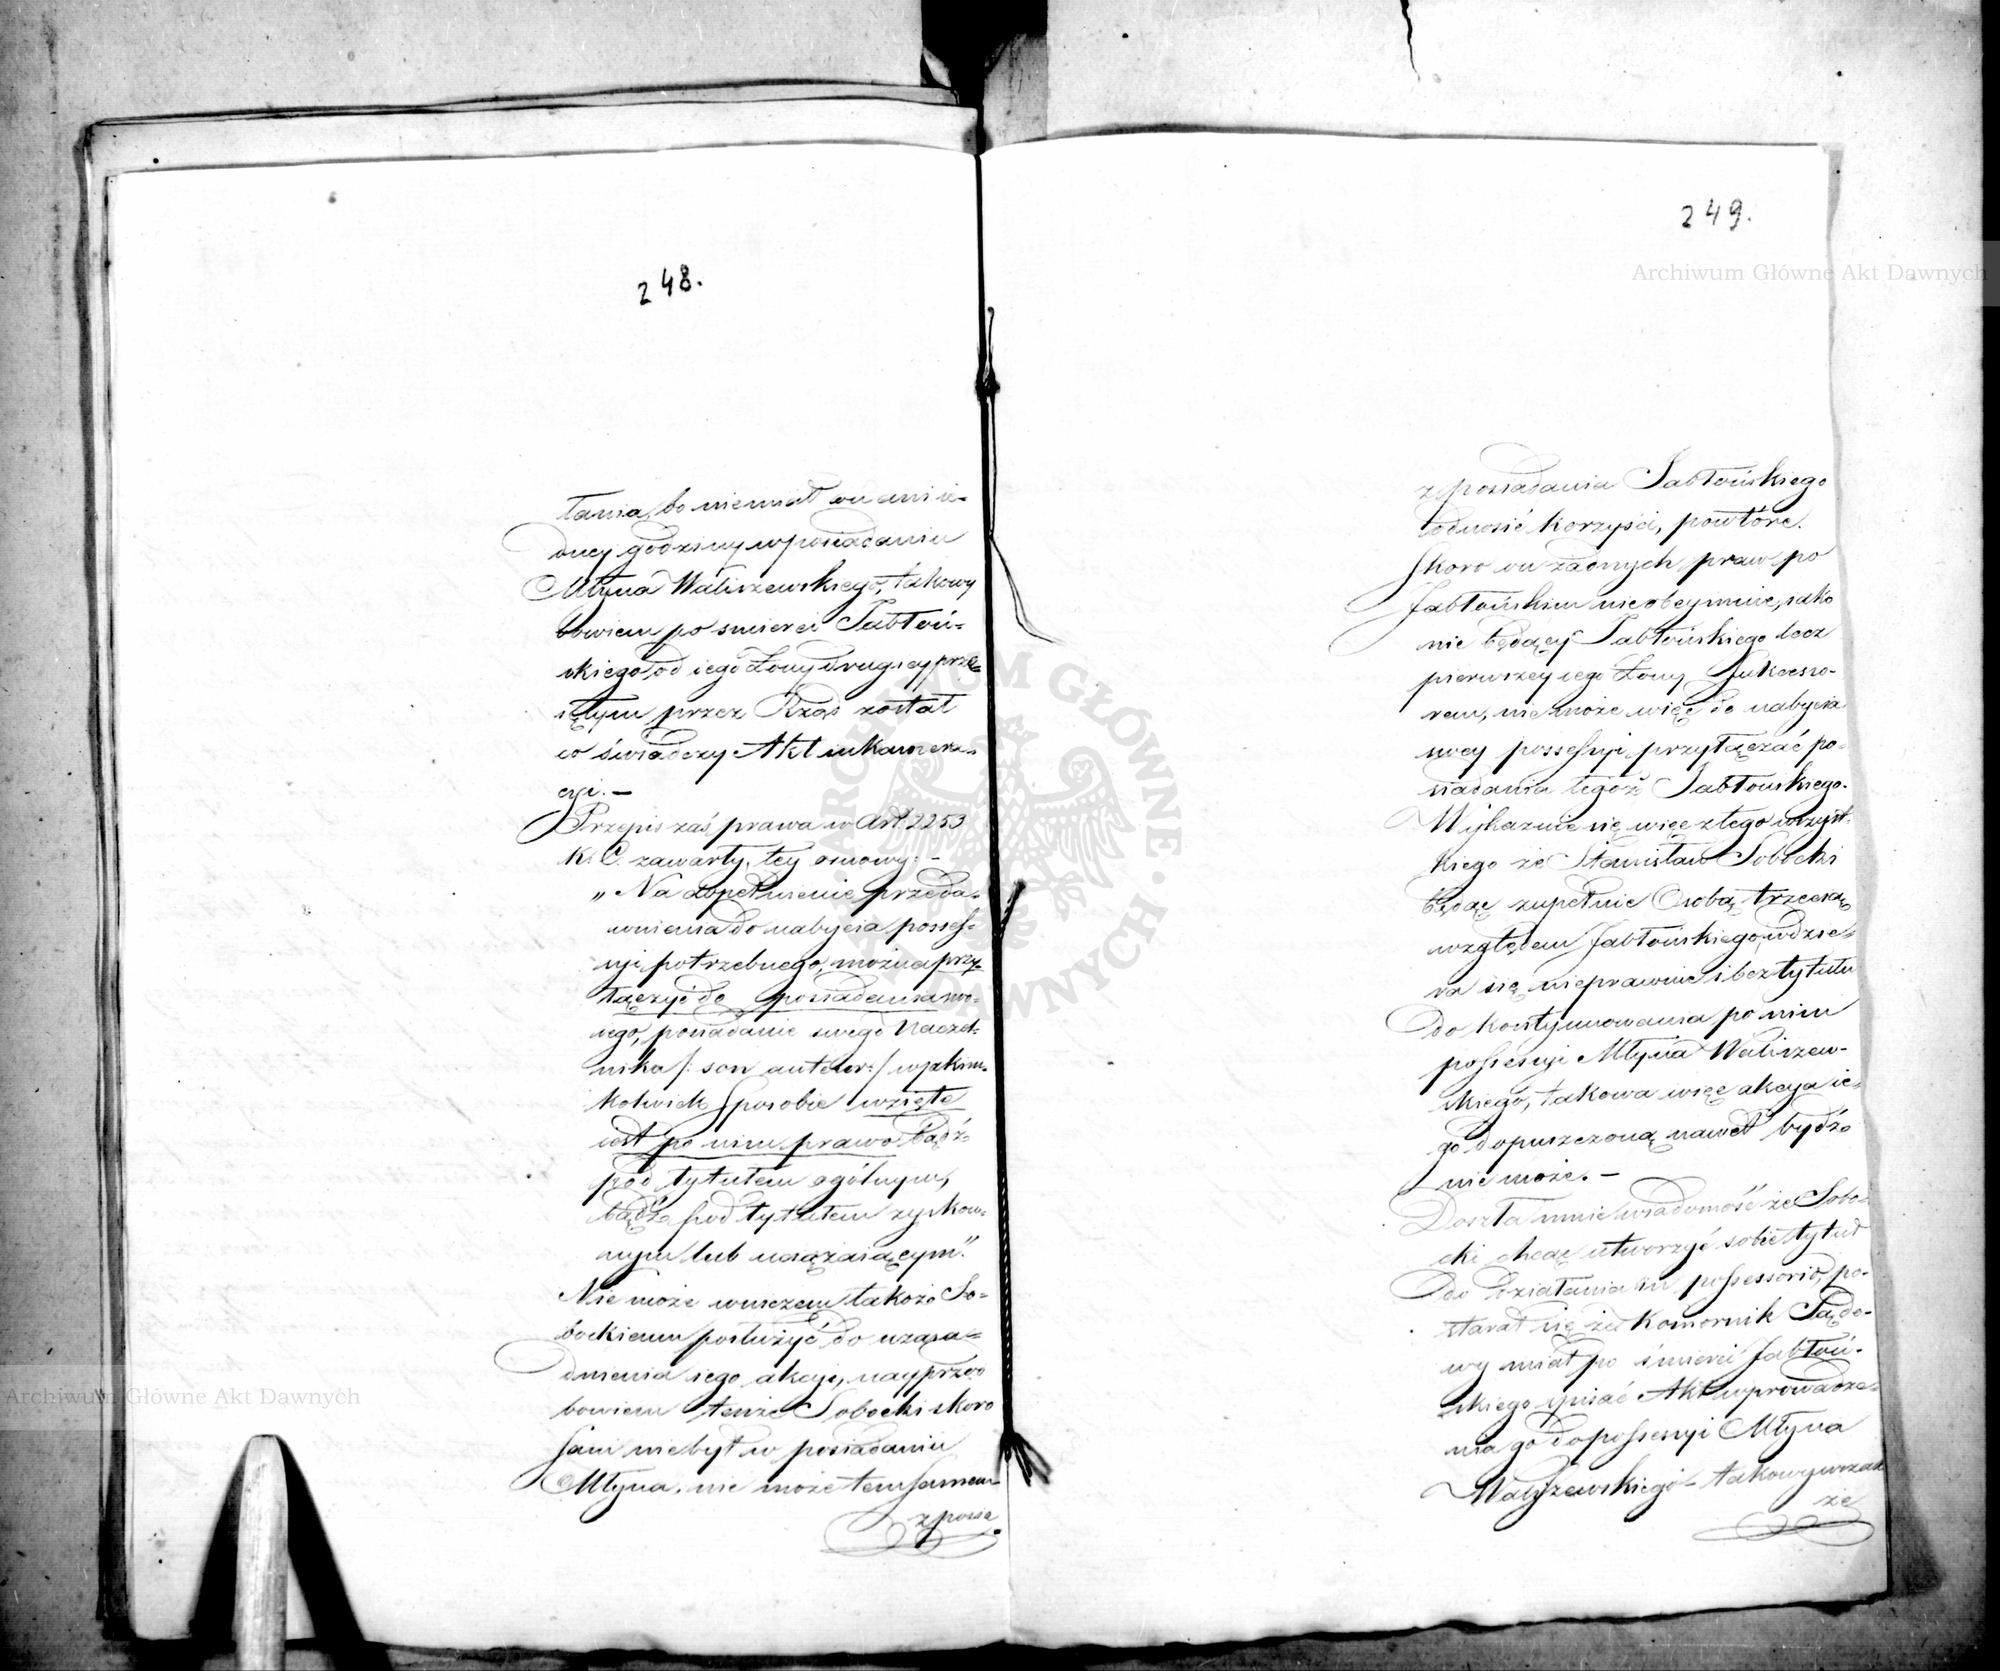 248.
łania, bo niemiał on ani ie-
dney godziny w posiadaniu
Młyna Waliszewskiego, takowy
bowiem po smierci Jabłoń-
skiego od iego Żony drugiey prze-
iętym przez Rząd został
co świadczy Akt inkamera-
cyi. —
Przepis zaś prawa w Art. 2253
K. C. zawarty, tey osnowy: —
„Na dopełnienie przeda-
wnienia do nabycia posses-
syi potrzebnego, można przy-
łączyć do posiadania swo-
iego, posiadanie swego Naczel-
nika /: son auteur :/ w jakim-
kolwiek sposobie wzięte
iest po nim prawo bądź
pod tytułem ogólnym,
bądź pod tytułem zyskow-
nym lub uciążaiącym."
Nie może wniczem także So-
bockiemu posłużyć do uzasa-
dnienia iego akcyi, nayprzód
bowiem tenże Sobocki skoro
sam niebył w posiadaniu
Młyna, nie może tem samem
z posia
249.
z posiadania Jabłońskiego
odnosić korzyści, powtóre.
Skoro on żadnych praw po
Jabłońskim nie obeymuie, iako
nie będący Jabłońskiego lecz
pierwszey iego Żony Sukcesso-
rem, nie może więc do nabycia
swey possessyi przyłączać po-
siadania tegoż Jabłońskiego.
Wykazuie się więc z tego wszyst-
kiego że Stanisław Sobocki
będąc zupełnie Osobą trzecią
względem Jabłońskiego, wdzie-
ra się nieprawnie i bez tytułu
do kontynuowania po nim
possessyi Młyna Waliszew-
skiego, takowa więc akcya ie-
go dopuszczoną nawet bydź
nie może. —
Doszła mnie wiadomość że Sobo-
cki chcąc utworzyć sobie tytuł
do działania in possessorio, po-
starał się że Komornik Sądo-
wy miał po śmierci Jabłoń-
skiego spisać Akt wprowadze-
nia go do possessyi Młyna
Waliszewskiego - takowy wszak
że
Archiwum Główne Akt Dawnych
Archiwum Główne Akt Dawnych
ARCHIWUM GŁÓWNE AKT DAWNYCH